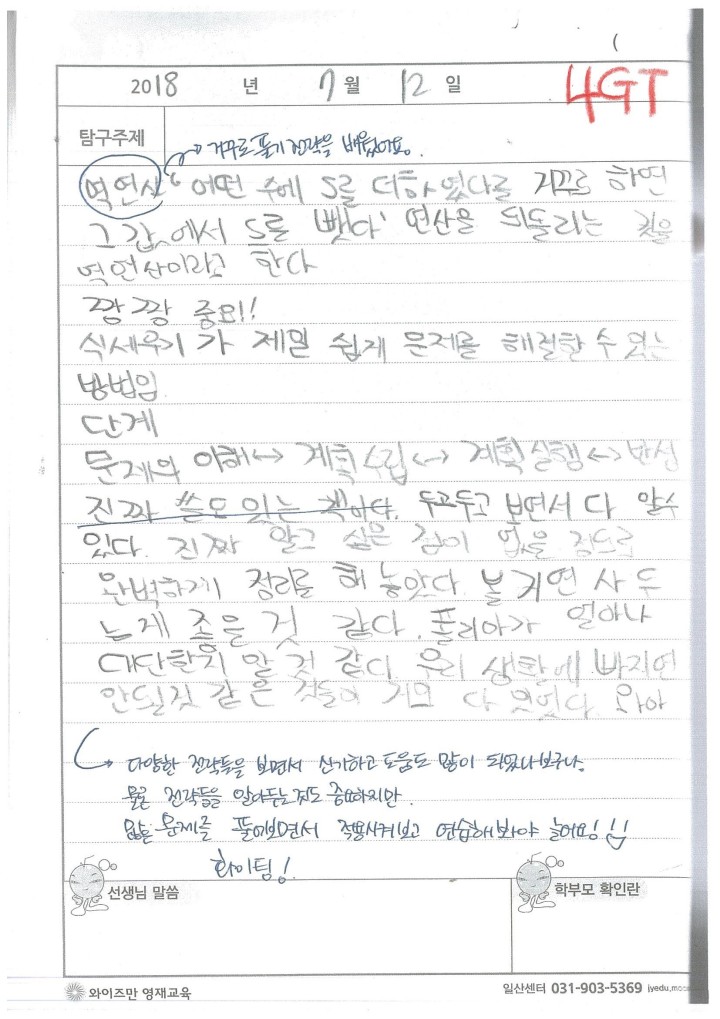 2018 년 7 월 12 일
4GT
탐구주제
거꾸로 풀기 전략을 배웠어요.
역연산 어떤 수에 5를 더하였다를 거꾸로 하면
그 값에서 5를 뺏다' 연산을 되돌리는 것을
역연산이라고 한다
짱짱 중요!!
식세우기가 제일 쉽게 문제를 해결할 수 있는
방법임
단계
문제의 이해↔ 계획수립↔ 계획실행↔반성
진짜 쓸모 있는 책이다. 두고두고 보면서 다 알수
있다. 진짜 알고 싶은 점이 없을 정도로
완벽하게 정리를 해 놓았다. 볼 거면 사 두
는게 좋을 것 같다. 폴리아가 얼마나
대단한지 알 것 같다. 우리 생활에 빠지면
안될것 같은 것들이 거의 다 있었다. 와아
다양한 전략들을 보면서 신기하고 도움도 많이 되었나보구나.
물론 전략들을 알아두는 것도 중요하지만.
많은 문제를 풀어보면서 적용시켜보고 연습해봐야 늘어요!
화이팅!
선생님 말씀
학부모 확인란
와이즈만 영재교육
일산센터 031-903-5369